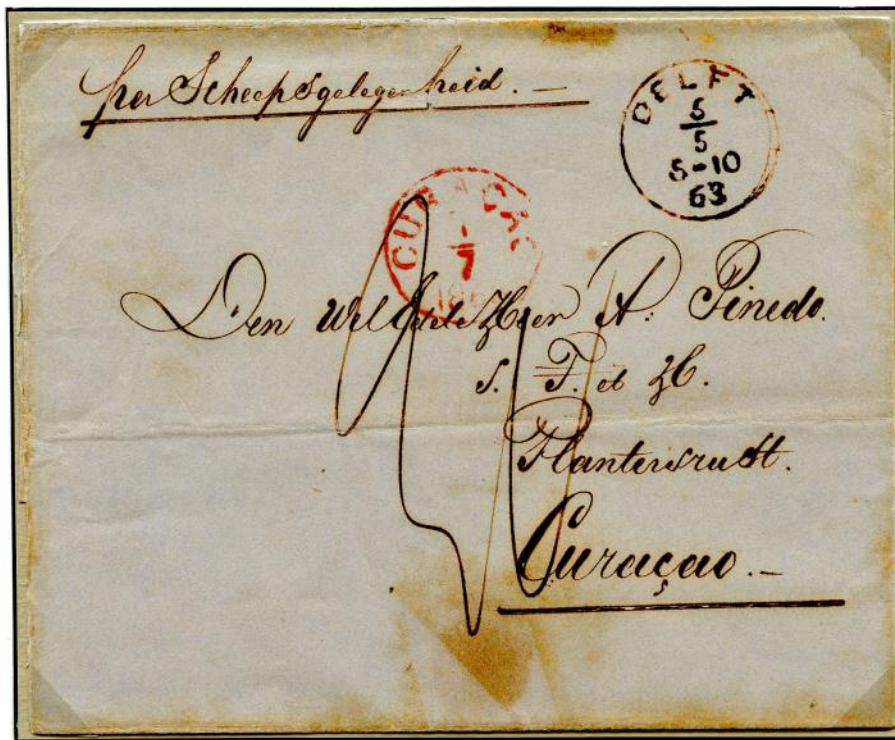 per Scheepsgelegenheid. —
DELFT
5
5
8-10
63
CURAÇAO
7
Den Wel Edele Heer A: Pinedo.
s. T. et H.
Plantersrust.
Curaçao. —